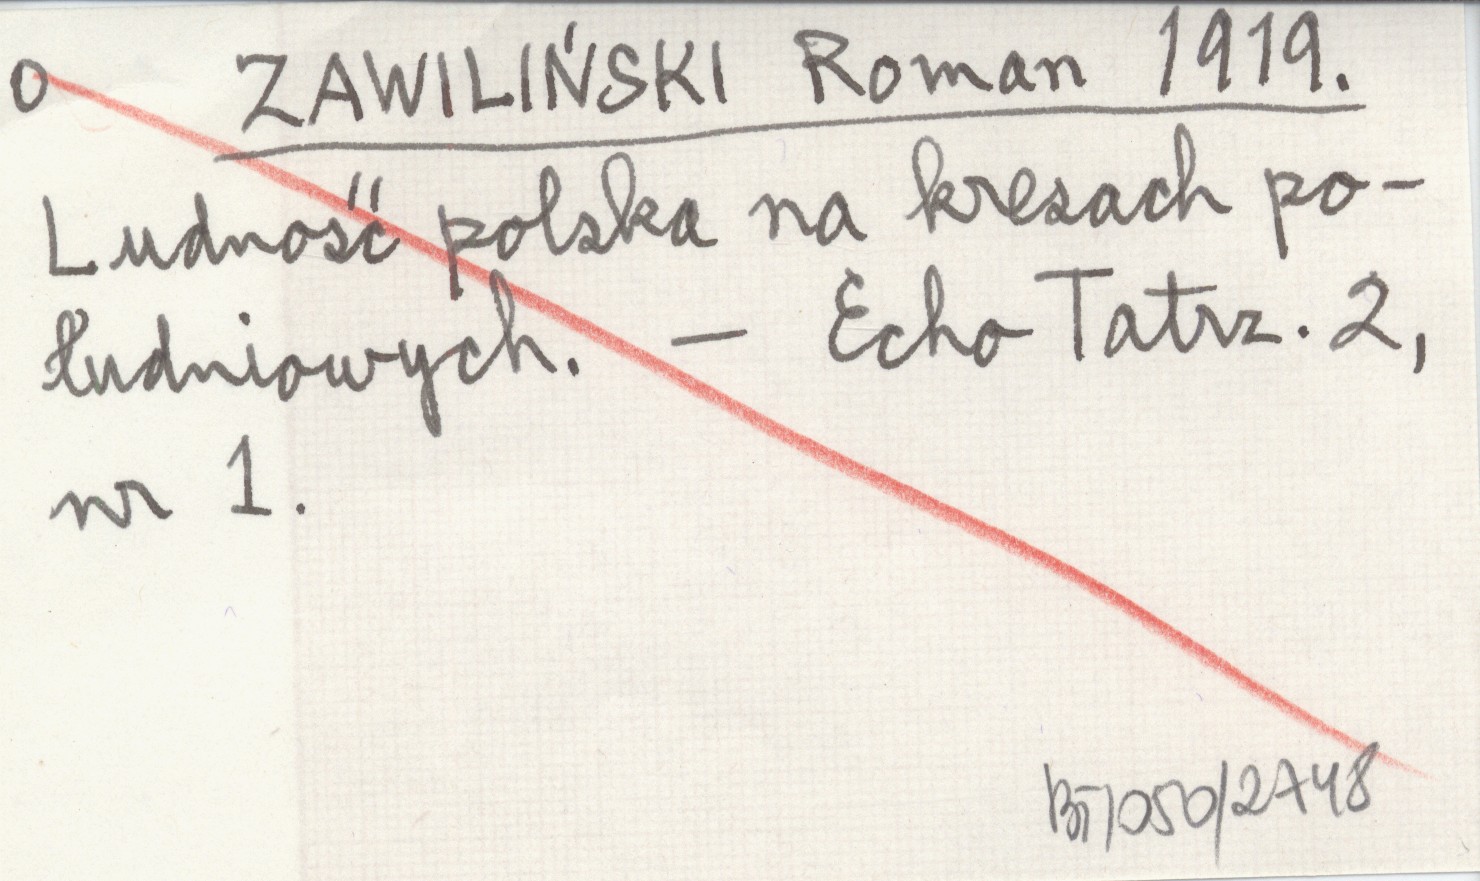 O ZAWILIŃSKI Roman 1919.
Ludność polska na kresach po-
łudniowych. — Echo Tatrz. 2,
nr 1.
BT/050/2748